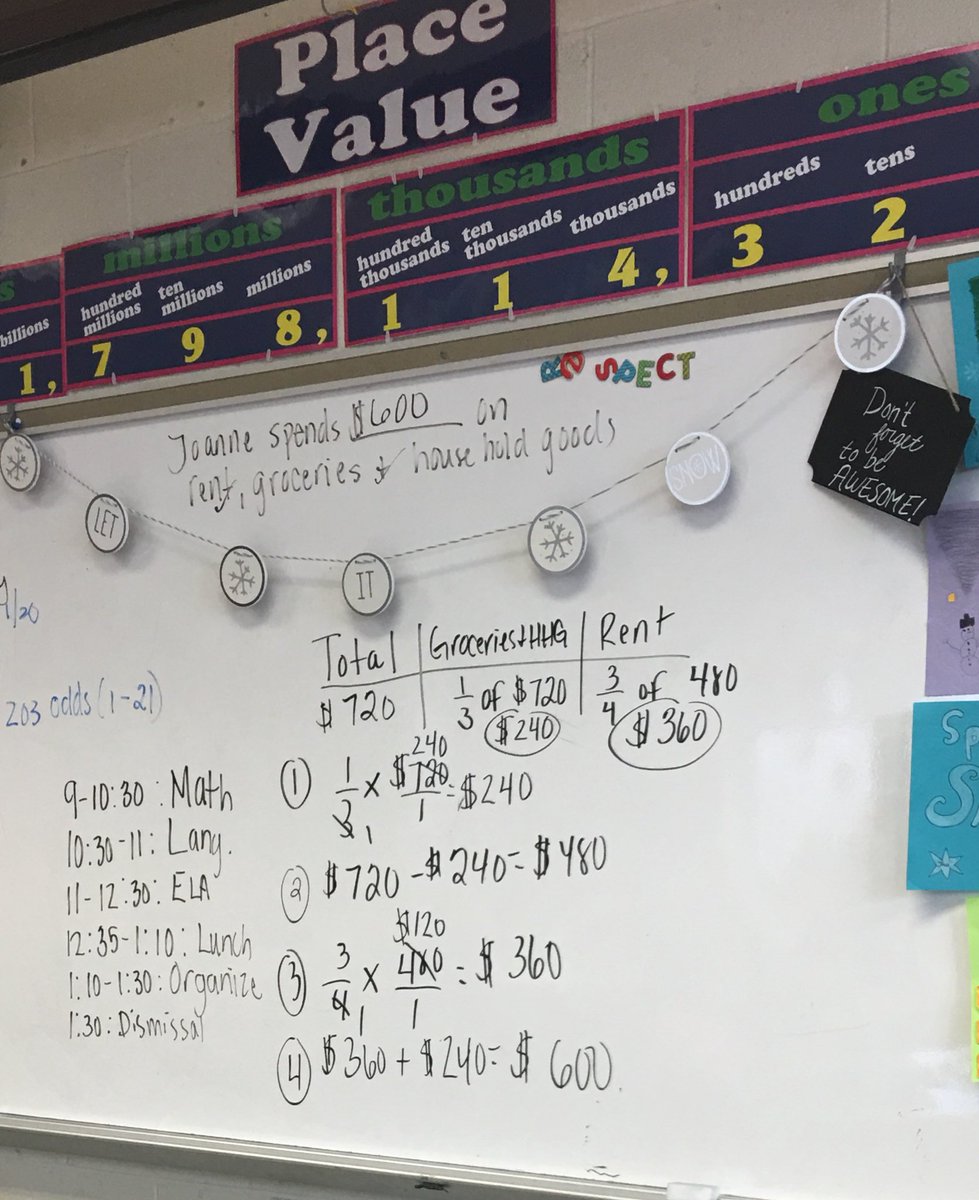 Place
Value
millions
thousands
ones
billions
hundred
millions
ten
millions
millions
hundred
thousands
ten
thousands
thousands
hundreds
tens
1, 7 9 8, 1 1 4, 3 2
RESPECT
Joanne spends $600 on
rent, groceries & house hold goods
LET
IT
SNOW
Don't
forget
to be
AWESOME!
/20
203 odds (1-21)
Total | Groceries+HHG | Rent
$720 | 1/3 of $720 | 3/4 of 480
$240 $360
① 1/3 x $720/1 = $240
240
1
② $720 - $240 = $480
$120
③ 3/4 x 480/1 = $360
1
④ $360 + $240 = $600.
9-10:30: Math
10:30-11: Lang.
11-12:30: ELA
12:35-1:10: Lunch
1:10-1:30: Organize
1:30: Dismissal